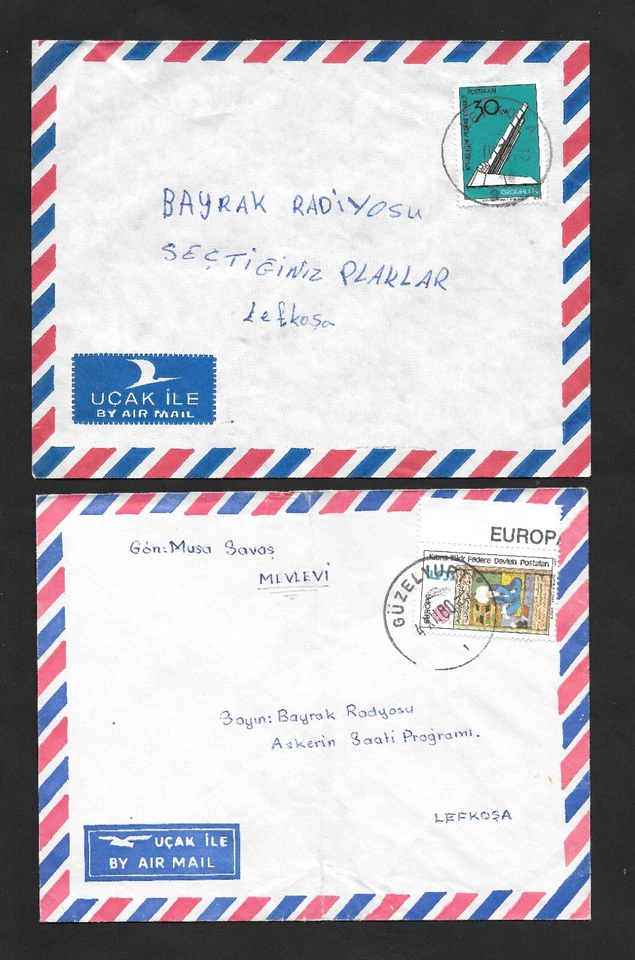 POSTALARI
30
ÖZGÜRLÜK
BAYRAK RADİYOSU
SEÇTİGİNİZ PLAKLAR
Lefkoşa
UÇAK İLE
BY AIR MAIL
EUROPA
Gön: Musa Savaş
MEVLEVİ
Kıbrıs Türk Federe Devleti Postaları
EUROPA
GÜZELYURT
Sayın: Bayrak Radyosu
Askerin Saati Programı.
LEFKOŞA
UÇAK İLE
BY AIR MAIL